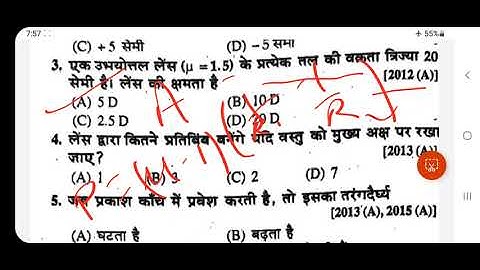 7:57
55%
(C) +5 सेमी (D) -5 सेमी
3. एक उभयोत्तल लेंस (μ = 1.5) के प्रत्येक तल की वक्रता त्रिज्या 20
सेमी है। लेंस की क्षमता है [2012 (A)]
(A) 5 D (B) 10 D
(C) 2.5 D (D) 20 D
4. लेंस द्वारा कितने प्रतिबिंब बनेंगे यदि वस्तु को मुख्य अक्ष पर रखा
जाए? [2013 (A)]
(A) 1 (B) 3 (C) 2 (D) 7
5. जब प्रकाश काँच में प्रवेश करती है, तो इसका तरंगदैर्घ्य
[2013 (A), 2015 (A)]
(A) घटता है (B) बढ़ता है